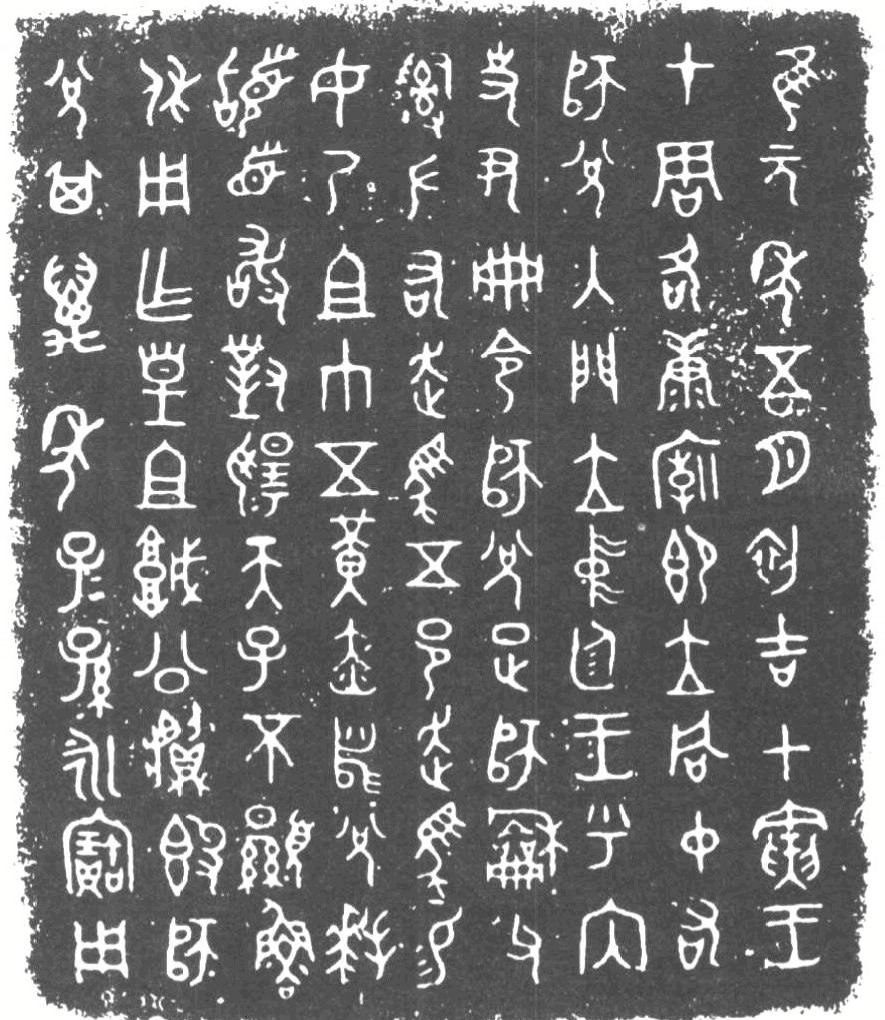 隹元年五月初吉甲寅王
才周各康廟即立同中右
師兌入門立中廷王乎內
史尹册令師兌疋師龢父
𤔲左右走馬五邑走馬易
女乃且巾五黃赤舄兌拜
𩒨首敢對揚天子不顯魯
休用乍皇且城公𩰫簋師
兌其萬年子=孫=永寶用